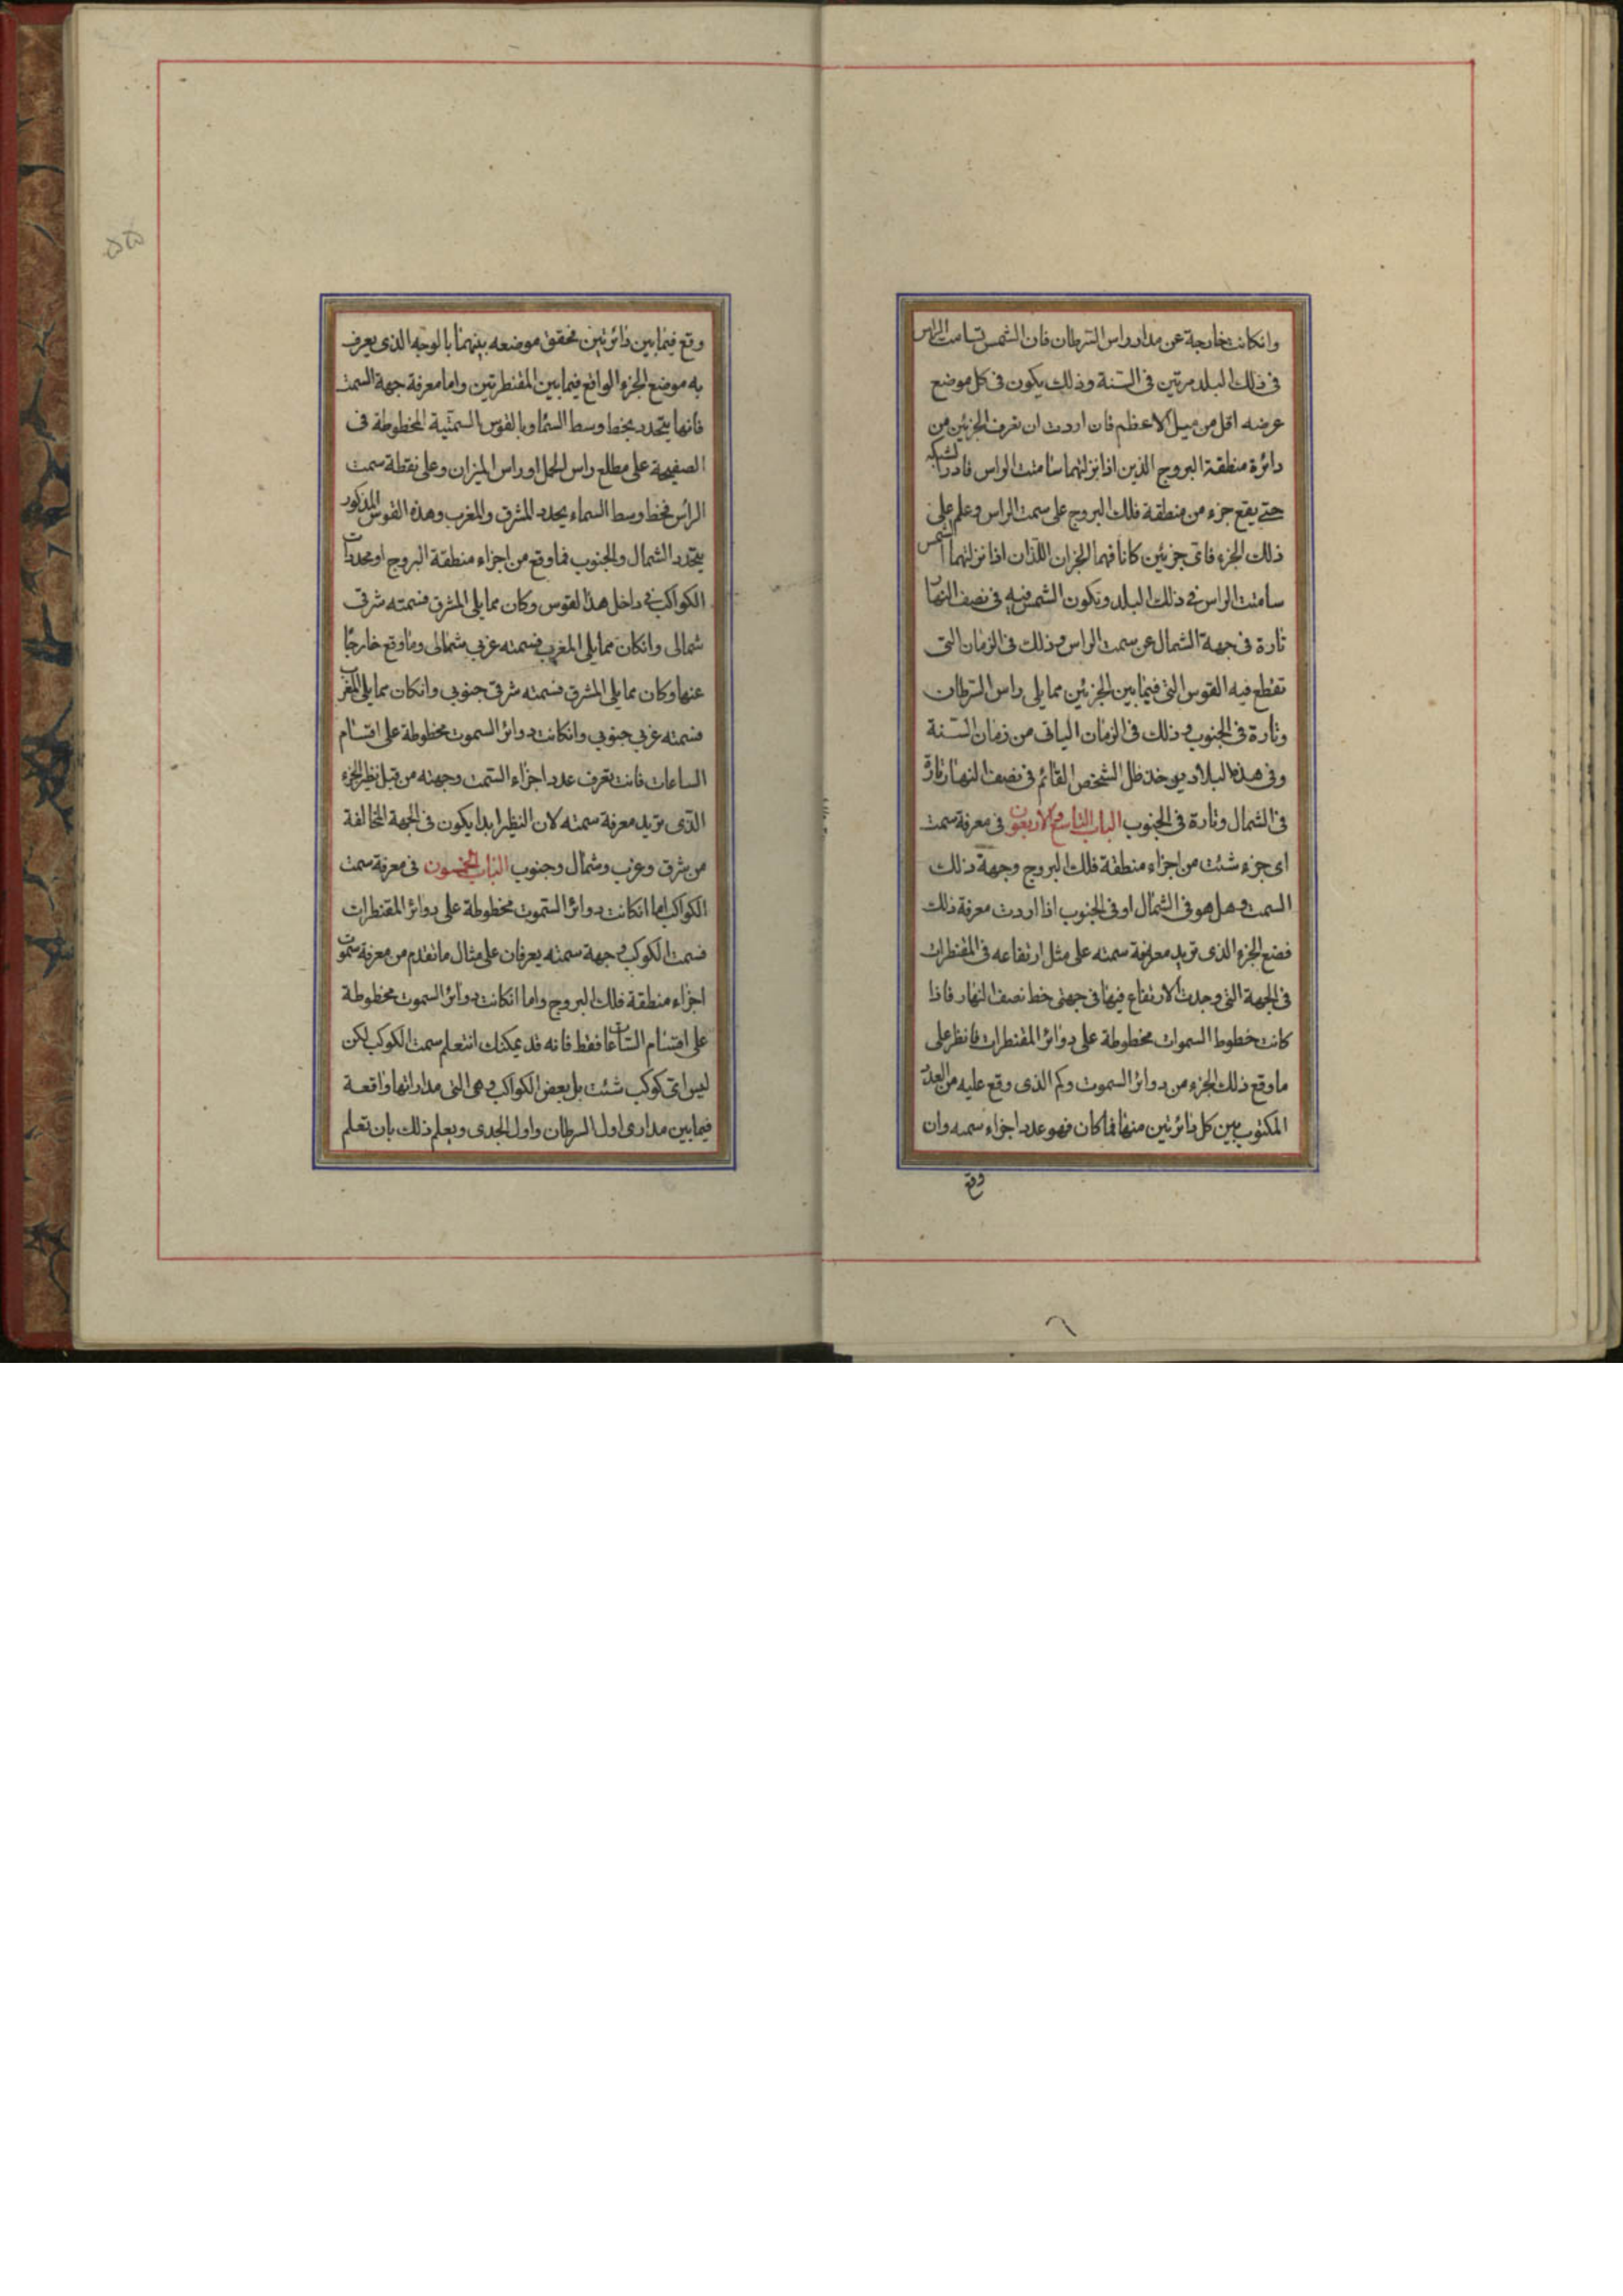 وانكانت خارجة عن مدار راس السرطان فان الشمس تسامت الراس
فى ذلك البلد مرتين فى السنة وذلك يكون فى كل موضع
عرضه اقل من ميل الاعظم فان اردت ان تعرف الجزئين من
دائرة منطقة البروج الذين اذا نزلتهما سامتت الراس فادر الشبكة
حتى يقع جزء من منطقة فلك البروج على سمت الراس وعلم على
ذلك الجزء فاى جزئين كانا فهما الجزان اللذان اذا نزلتهما الشمس
سامتت الراس فى ذلك البلد ويكون الشمس فيه فى نصف النهار
تارة فى جهة الشمال عن سمت الراس وذلك فى الزمان التى
تقطع فيه القوس التى فيما بين الجزئين مما يلى راس السرطان
وتارة فى الجنوب وذلك فى الزمان الباقى من زمان السنة
وفى هذا البلاد يوخذ ظل الشخص القائم فى نصف النهار تارة
فى الشمال وتارة فى الجنوب الباب التاسع والاربعون فى معرفة سمت
اى جزء شئت من اجزاء منطقة فلك البروج وجهة ذلك
السمت وهل هو فى الشمال او فى الجنوب اذا اردت معرفة ذلك
فضع الجزء الذى تريد معرفة سمته على مثل ارتفاعه فى المقنطرات
فى الجهة التى وجدت الارتفاع فيها فى جهتى خط نصف النهار فاذا
كانت خطوط السموات مخطوطة على دوائر المقنطرات فانظر على
ما وقع ذلك الجزء من دوائر السموت وكم الذى وقع عليه من العدد
المكتوب بين كل دائرتين منها فما كان فهو عدد اجزاء سمته وان
وقع
وقع فيما بين دائرتين تحقق موضعه بينهما بالوجه الذى يعرف
به موضع الجزء الواقع فيما بين المقنطرتين واما معرفة جهة السمت
فانها يتحدد بخط وسط السما وبالقوس السمتية المخطوطة فى
الصفيحة على مطلع راس الحمل او راس الميزان وعلى نقطة سمت
الراس فخط وسط السماء يحدد المشرق والمغرب وهذه القوس المذكور
يتحدد الشمال والجنوب فما وقع من اجزاء منطقة البروج او محددات
الكواكب فى داخل هذا لقوس وكان مما يلى المشرق فسمته شرقى
شمالى وانكان مما يلى المغرب فسمته غربى شمالى وما وقع خارجا
عنها وكان مما يلى المشرق فسمته شرقى جنوبى وانكان مما يلى المغرب
فسمته غربى جنوبى وانكانت دوائر السموت مخطوطة على اقسام
الساعات فانت تعرف عدد اجزاء السمت وجهته من قبل نظير الجزء
الذى تريد معرفة سمته لان النظير ابدا يكون فى الجهة المخالفة
من شرق وغرب وشمال وجنوب الباب الخمسون فى معرفة سمت
الكواكب اما انكانت دوائر السموت مخطوطة على دوائر المقنطرات
فسمت الكوكب وجهة سمته يعرفان على مثال ما تقدم من معرفة سموت
اجزاء منطقة فلك البروج واما انكانت دوائر السموت مخطوطة
على اقسام الساعات فقط فانه قد يمكنك ان تعلم سمت الكوكب لكن
ليس اى كوكب شئت بل بعض الكواكب وهى التى مداراتها واقعة
فيما بين مدارى اول السرطان واول الجدى ويعلم ذلك بان تعلم